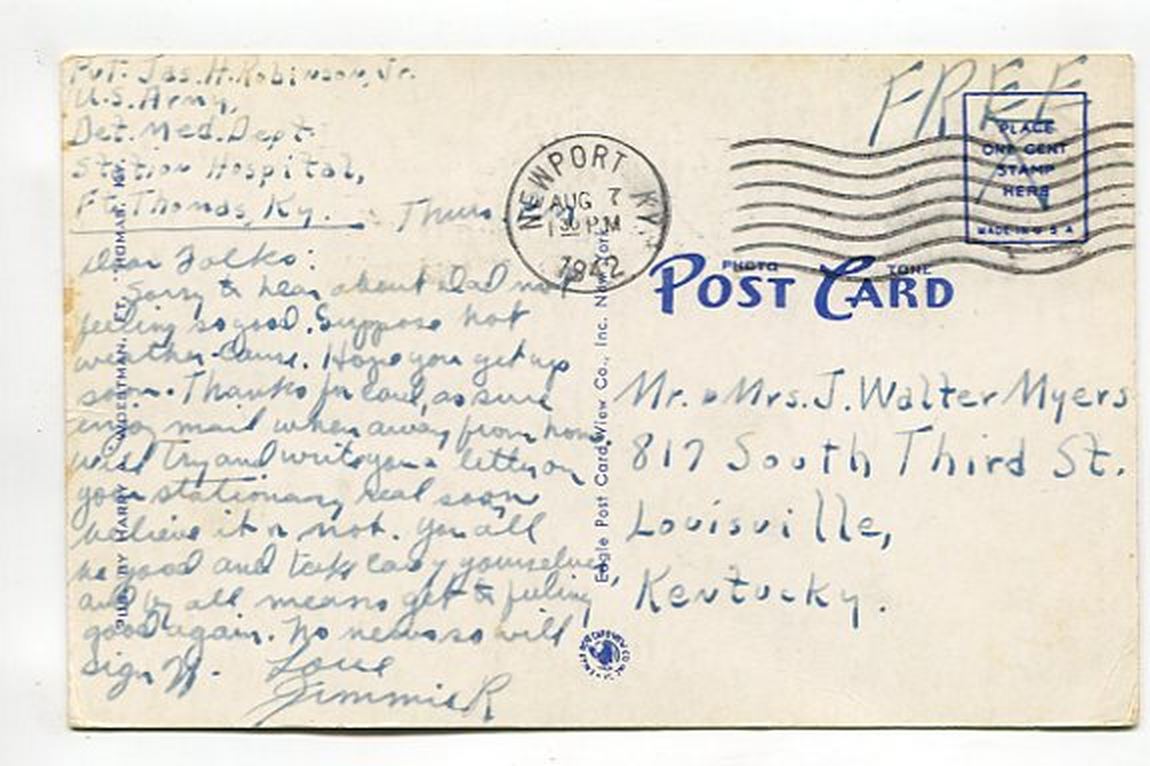 Pvt. Jas. H. Robinson, Jr.
U.S. Army,
Det. Med. Dept.
Station Hospital,
Ft. Thomas, Ky.
Thurs.
Dear Folks:
Sorry to hear about Dad not
feeling so good. Suppose hot
weather cause. Hope you get up
soon. Thanks for card, as sure
enjoy mail when away from home
will try and write you a letter on
your stationary real soon
believe it or not. You all
be good and take care of yourselves,
and by all means get to feeling
good again. No news so will
sign off.
Love
Jimmie R
PUB. BY HARRY WOERTMAN, FT. THOMAS, KY.
NEWPORT KY.
AUG 7
1 30 PM
1942
FREE
PLACE
ONE CENT
STAMP
HERE
MADE IN U S A
PHOTO TONE
POST CARD
Eagle Post Card View Co., Inc. New York
Mr. & Mrs. J. Walter Myers
817 South Third St.
Louisville,
Kentucky.